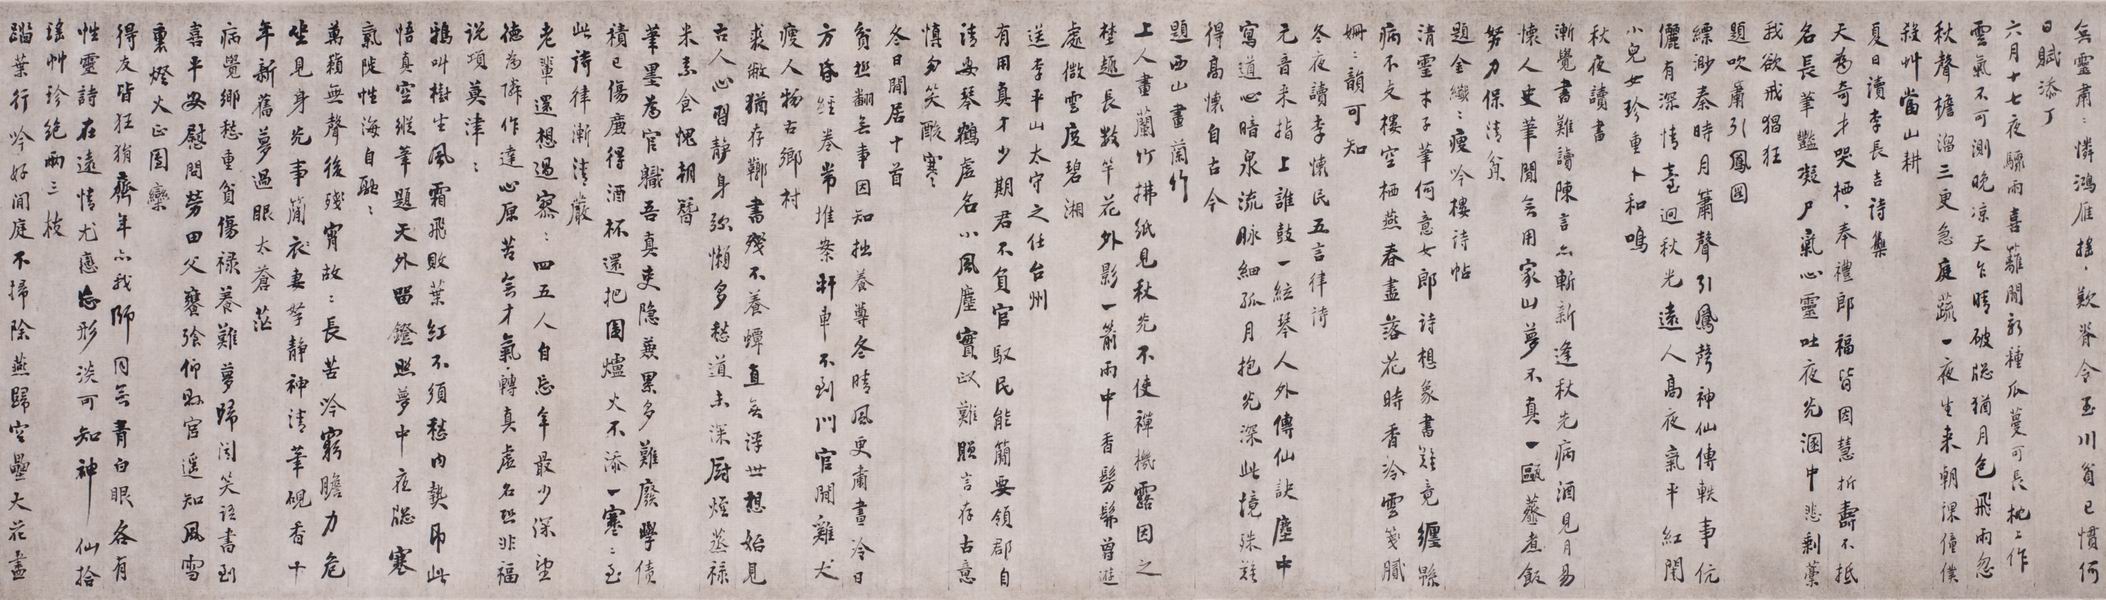 無靈肅〻憐鴻雁搖〻歎脊令玉川貧已慣何
日賦添丁
六月十七夜驟雨喜蘿間新種瓜蔓可長枕上作
雲氣不可測晚凉天乍晴破牕猶月色飛雨忽
秋聲檐溜三更急庭蔬一夜生来朝課僮僕
殺艸當山耕
夏日讀李長吉詩集
天為奇才哭栖〻奉禮郎福皆因慧折壽不抵
名長筆豔凝尸氣心靈吐夜光溷中悲剩藁
我欲戒猖狂
題吹簫引鳳圖
縹渺秦時月簫聲引鳳聲神仙傳軼事伉
儷有深情臺迥秋光遠人高夜氣平紅閨
小兒女珍重卜和鳴
秋夜讀書
漸覺書難讀陳言亦斬新逢秋光病酒見月易
懷人史筆閒無用家山夢不真一甌虀煮飯
努力保清貧
題金纖〻瘦吟樓詩帖
清靈才子筆何意女郎詩想象書難竟纏緜
病不支樓空栖燕春盡落花時香冷雲箋膩
姍〻韻可知
冬夜讀李懷民五言律詩
元音来指上誰鼓一絃琴人外傳仙訣塵中
寫道心暗泉流脉細孤月抱光深此境殊難
得高懷自古今
題西山畫蘭竹
上人畫蘭竹拂紙見秋光不使禪機露因之
埜趣長數竿花外影一箭雨中香髣髴曾遊
處微雲度碧湘
送李平山太守之任台州
有用真才少期君不負官馭民能簡要領郡自
清安琴鶴虛名小風塵實政難贈言存古意
慎勿笑酸寒
冬日閒居十首
貧極翻無事因知拙養尊冬晴風更肅晝冷日
方昏經卷常堆案軒車不到門官閒雞犬
瘦人物古鄉村
裘敝猶存鄉書殘不養蟫直無浮世想始見
古人心習靜身弥懶多愁道未深厨烟蒸祿
米素食愧朝簪
筆墨為官職吾真吏隱兼累多難廢學債
積已傷廉得酒杯還把圍爐火不添一寒〻至
此詩律漸清嚴
老輩還想過寥〻四五人自忘年最少深望
德為隣作達心原苦無才氣轉真虛名恐非福
说項莫津〻
鴉叫樹生風霜飛敗葉紅不須愁内熱即此
悟真空縱筆題天外留鐙照夢中夜牕寒
氣陡性海自融〻
萬籟無聲後殘宵故〻長苦吟窮膽力危
坐見身光事簡衣妻孥靜神清筆硯香十
年新舊夢過眼太蒼茫
病覺鄉愁重貧傷祿養難夢歸闻笑语書到
喜平安慰問勞田父饔飧仰縣官遥知風雪
裏燈火正團欒
得友皆狂狷齊年亦我師同無青白眼各有
性靈詩在遠情尤戀忘形淡可知神仙拾
瑤艸珍絶兩三枝
蹋葉行吟好閒庭不掃除燕歸空壘大花盡